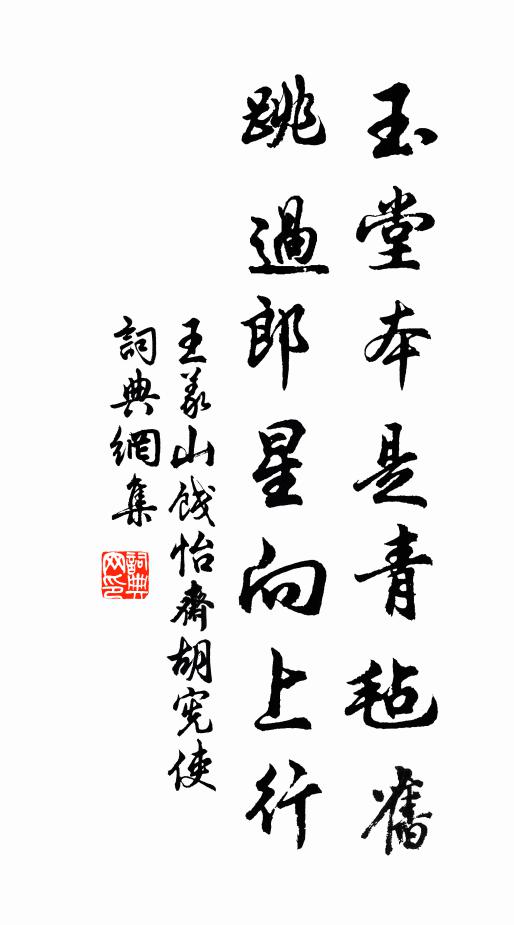 玉堂本是青毡舊
跳過郎星向上行
王義山餞怡齋胡憲使
詞典網集
詞典网印